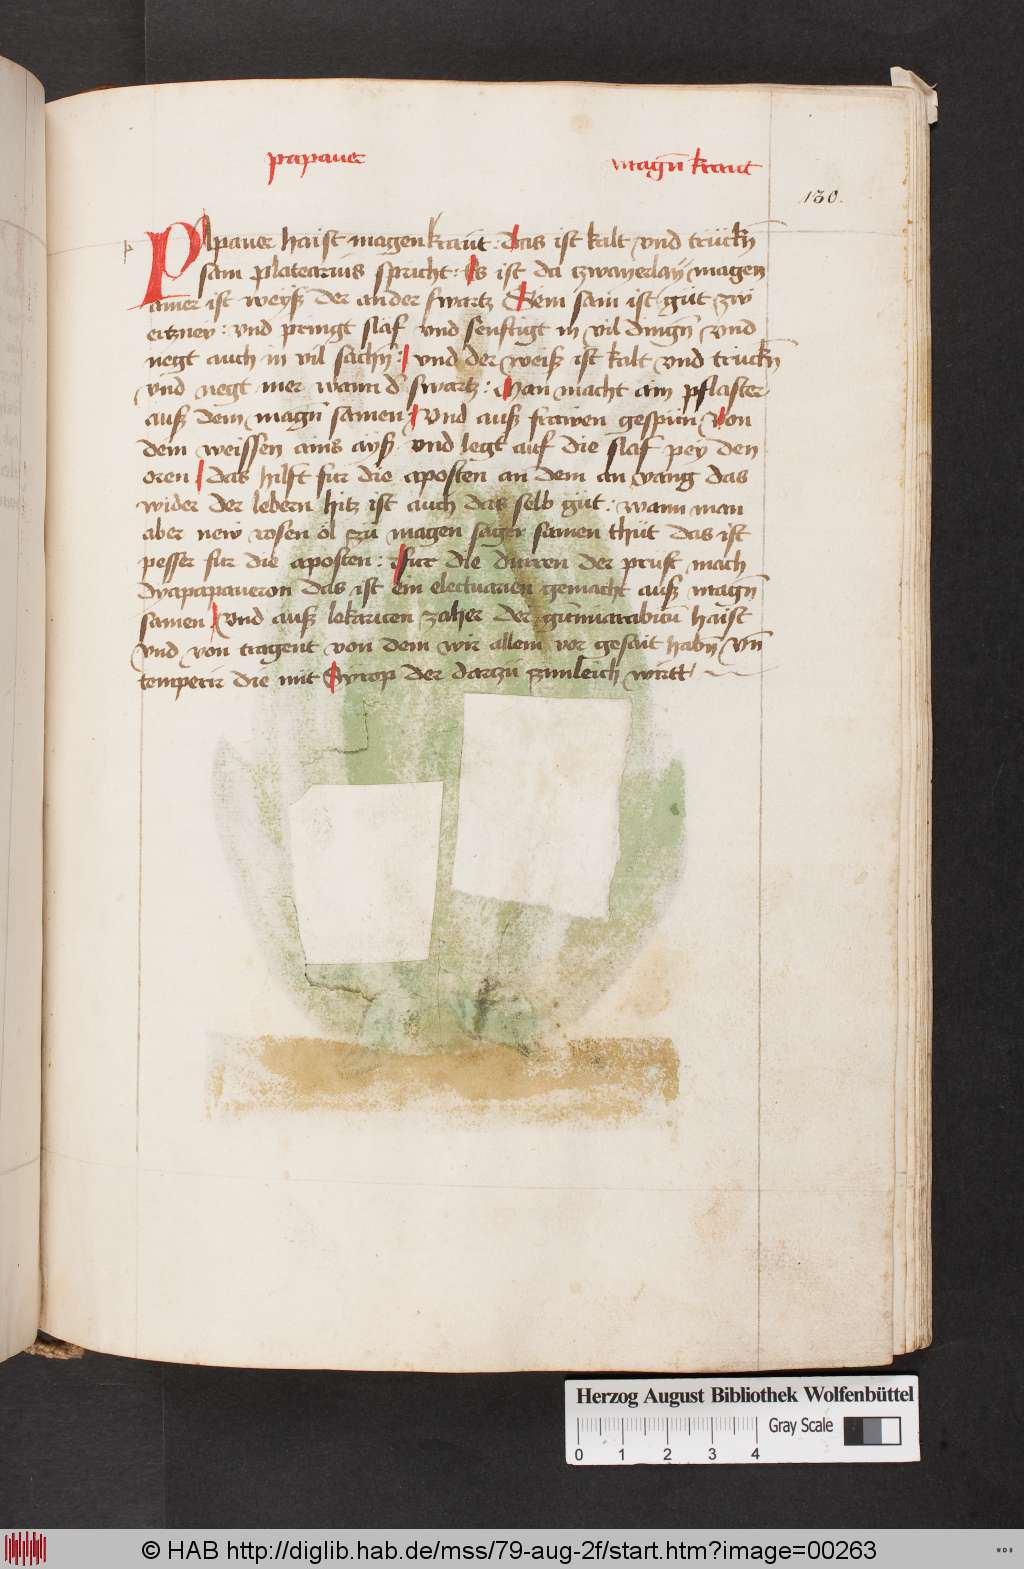 papauer
magn̄ kraut
130.
PApauer haist magenkraut : Das ist kalt vnd trückn̄
sam platearius spricht : Es ist da tzwayerlay magen
ainer ist weyß der ander swartz Dem sam ist güt zw
ertzney : vnd pringt slaf vnd senftigt in vil dingn̄ vnd
negt auch in vil sachn̄ : vnd der weiß ist kalt vnd trückn̄
vnd negt mer wann d̕ swartz : Man macht ain pflaster
auß dem magn̄ samen : Vnd auß frawen gespün : Von
dem weissen ains ayß vnd legt auf die slaf pey den
oren das hilft fur die aposten an dem an vang das
wider der lebern hitz ist auch das selb güt : wann man
aber new rosen öl zu magen samen thüt das ist
pesser fur die aposten : Fur die durren der prust mach
dyapapaueron das ist ein electuarien gemacht auß magn̄
samen Vnd auß lekaricen zaher der gūmiarabicū haist
vnd von tragent von dem wir allem vor gesait habn̄ Vn̄
temperir die mit Syrop der dartzu zimleich wirtt
Herzog August Bibliothek Wolfenbüttel
Gray Scale
0 1 2 3 4
© HAB http://diglib.hab.de/mss/79-aug-2f/start.htm?image=00263